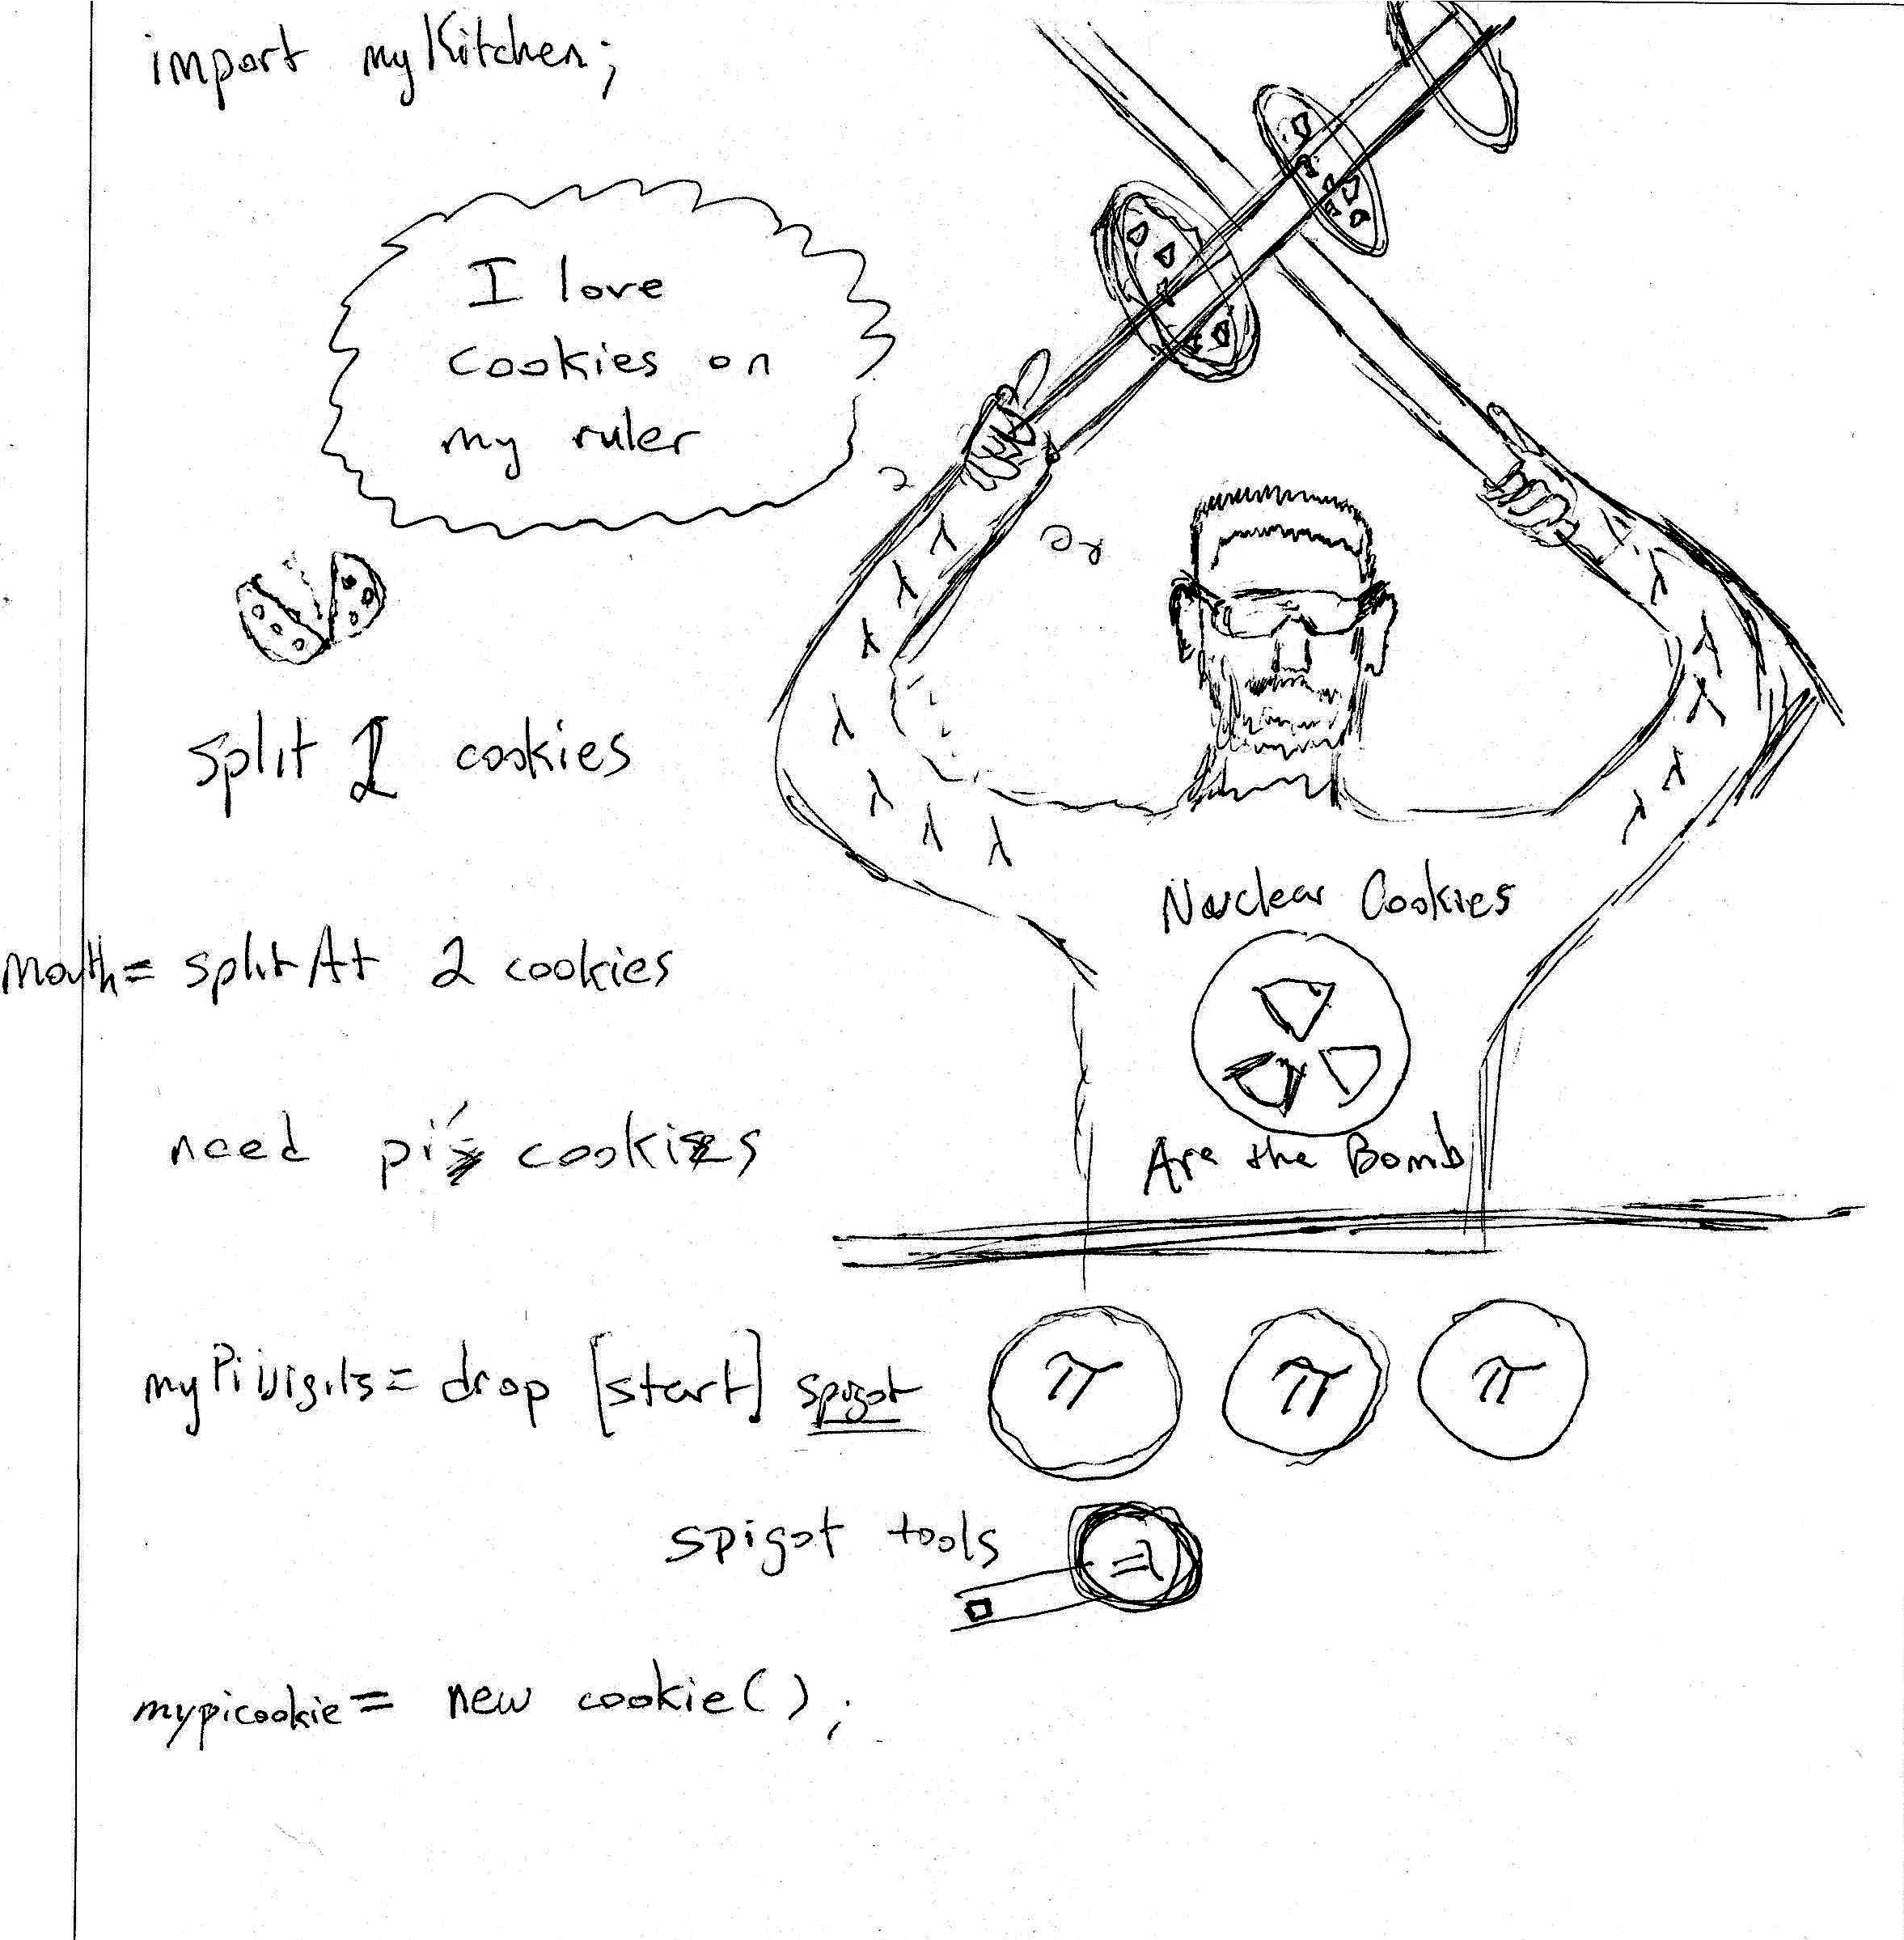 import myKitchen;
I love
cookies on
my ruler
split 2 cookies
mouth = splitAt 2 cookies
need pi's cookies
Nuclear Cookies
Are the Bomb
myPiDigits = drop [start] spigot
π π π
spigot tools
=λ
mypicookie = new cookie();
λ λ λ λ λ λ λ
λ λ λ λ λ